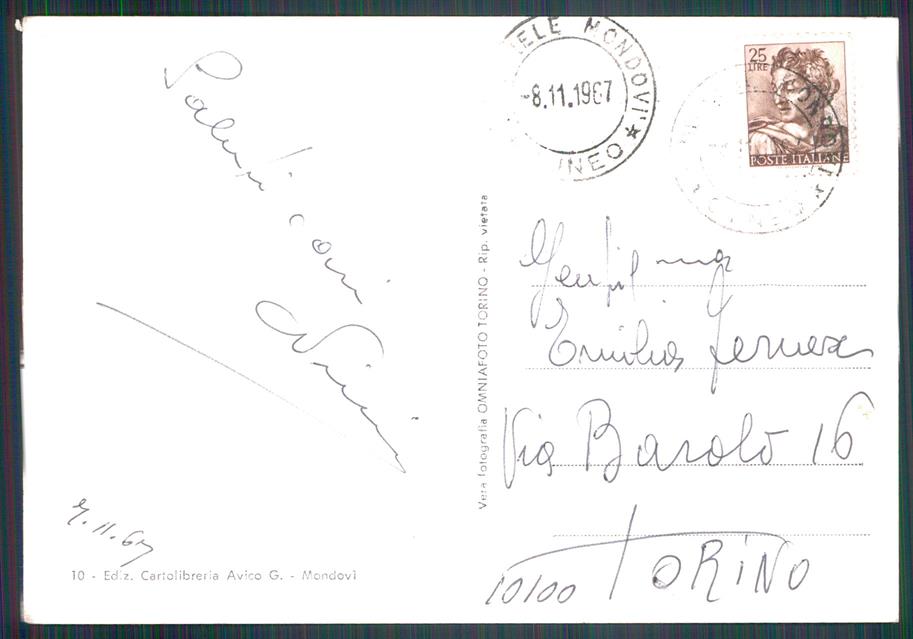 Saluti cari
Nini
7.11.67
10 - Ediz. Cartolibreria Avico G. - Mondovì
Vera fotografia OMNIAFOTO TORINO - Rip. vietata
ELE MONDOVI'
-8.11.1967
NEO
25
LIRE
POSTE ITALIANE
Gentil.ma
Emilia
Via Barolo 16
10100 TORINO